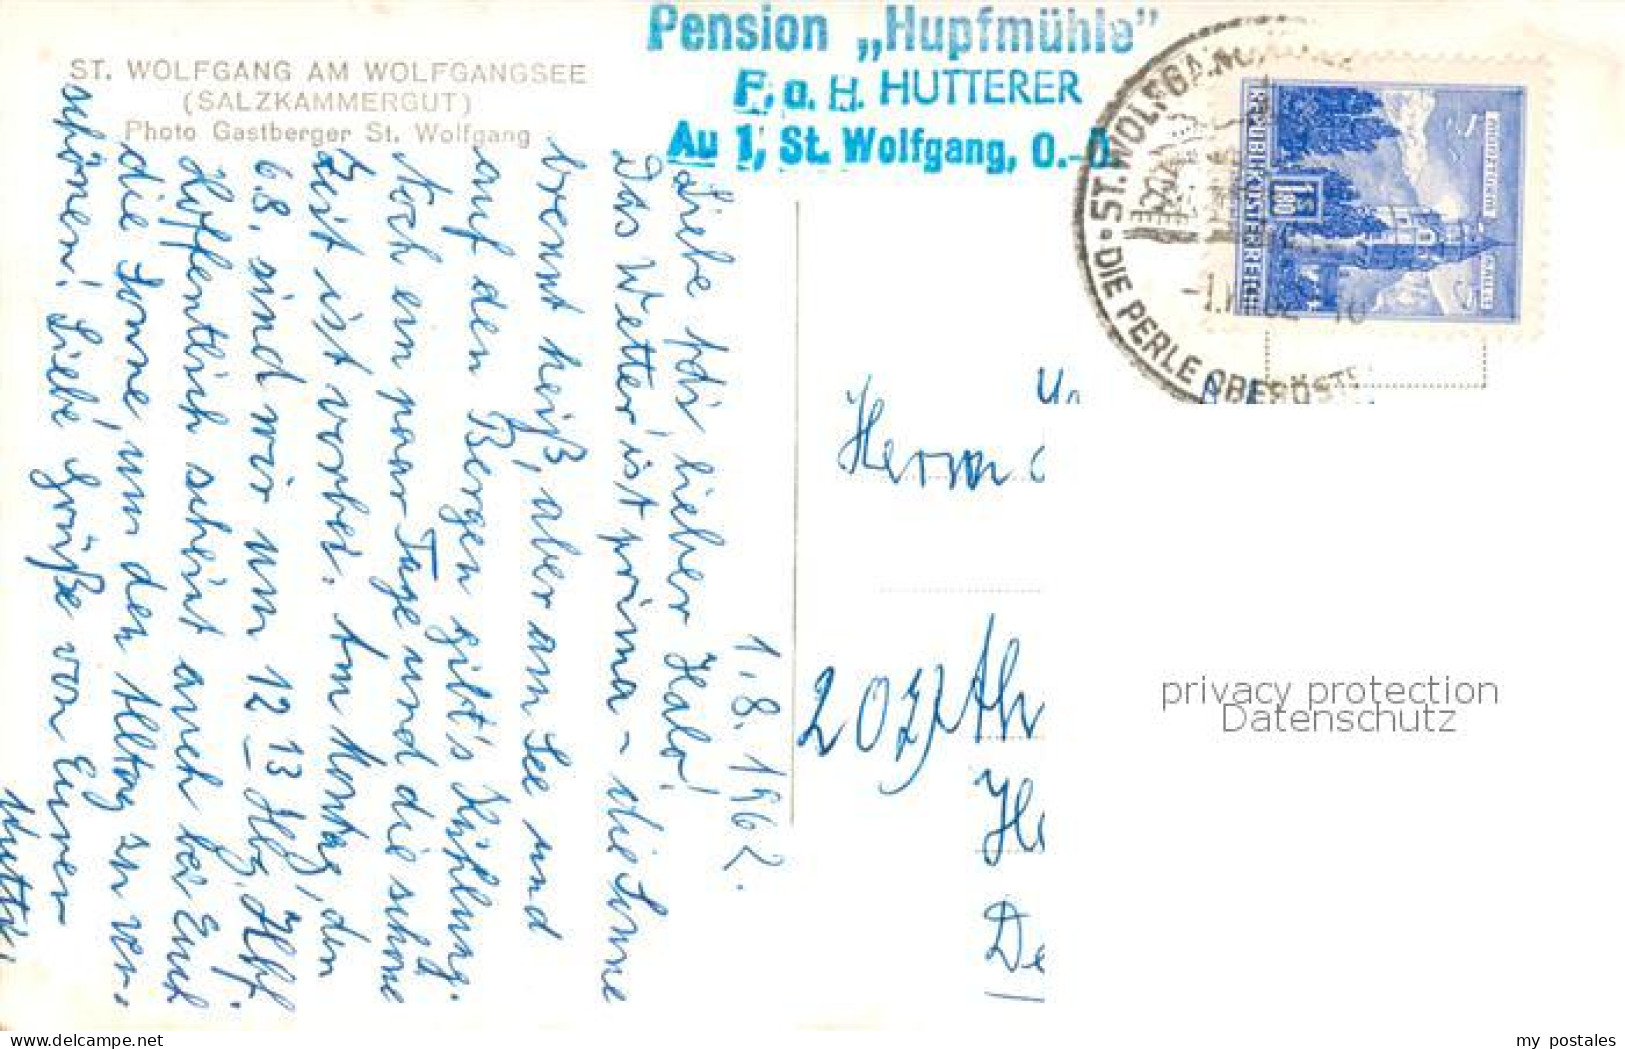 ST. WOLFGANG AM WOLFGANGSEE
(SALZKAMMERGUT)
Photo Gastberger St. Wolfgang
Pension „Hupfmühle"
F. o. H. HUTTERER
Au 1, St. Wolfgang, O.-Ö.
ST. WOLFGANG
DIE PERLE OBERÖST
REPUBLIK ÖSTERREICH
S 1.80
1.8.1962.
Liebe lieber Halo!
Das Wetter ist prima - die Sonne
brennt heiß, aber am See und
auf den Bergen gibt's Kühlung.
Noch ein paar Tage und die schöne
Zeit ist vorbei. Am Montag, den
6.8. sind wir um 12 13 Hbg. Hbf.
Hoffentlich scheint auch bei Euch
die Sonne, um den Alltag zu ver-
schönen! Liebe Grüße von Eurer
Mutti.
Herrn
20
H
De
privacy protection
Datenschutz
my postales